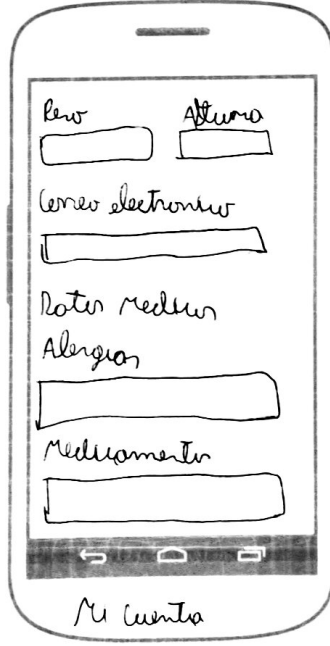 Peso Altura
Correo electronico
Datos medicos
Alergias
Medicamentos
Mi cuenta